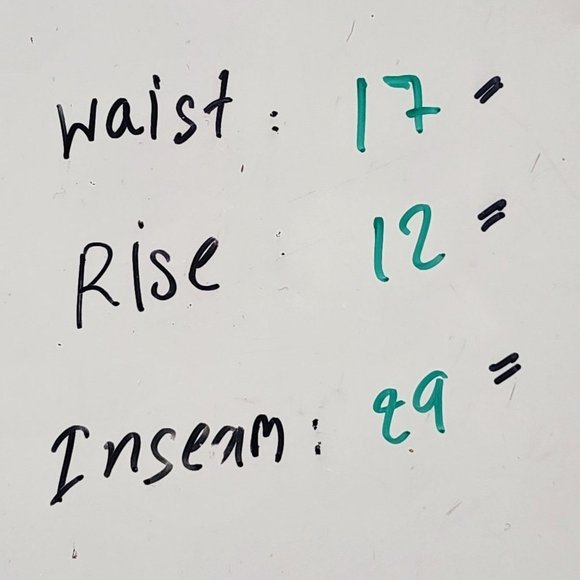 Waist: 17"
Rise 12"
Inseam: 29"